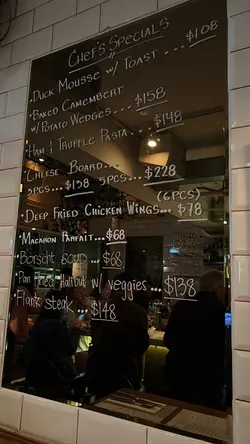 CHEF'S SPECIALS
•DUCK MOUSSE W/ TOAST ... $108
•BAKED CAMEMBERT
W/ POTATO WEDGES... $158
•HAM & TRUFFLE PASTA... $148
•CHEESE BOARD...
3PCS... $138 5PCS... $228
(6PCS)
•DEEP FRIED CHICKEN WINGS... $78
•MACARON PARFAIT... $68
•Borscht soup ... $68
•Pan fried Halibut w/ veggies ... $138
•Flank steak $148